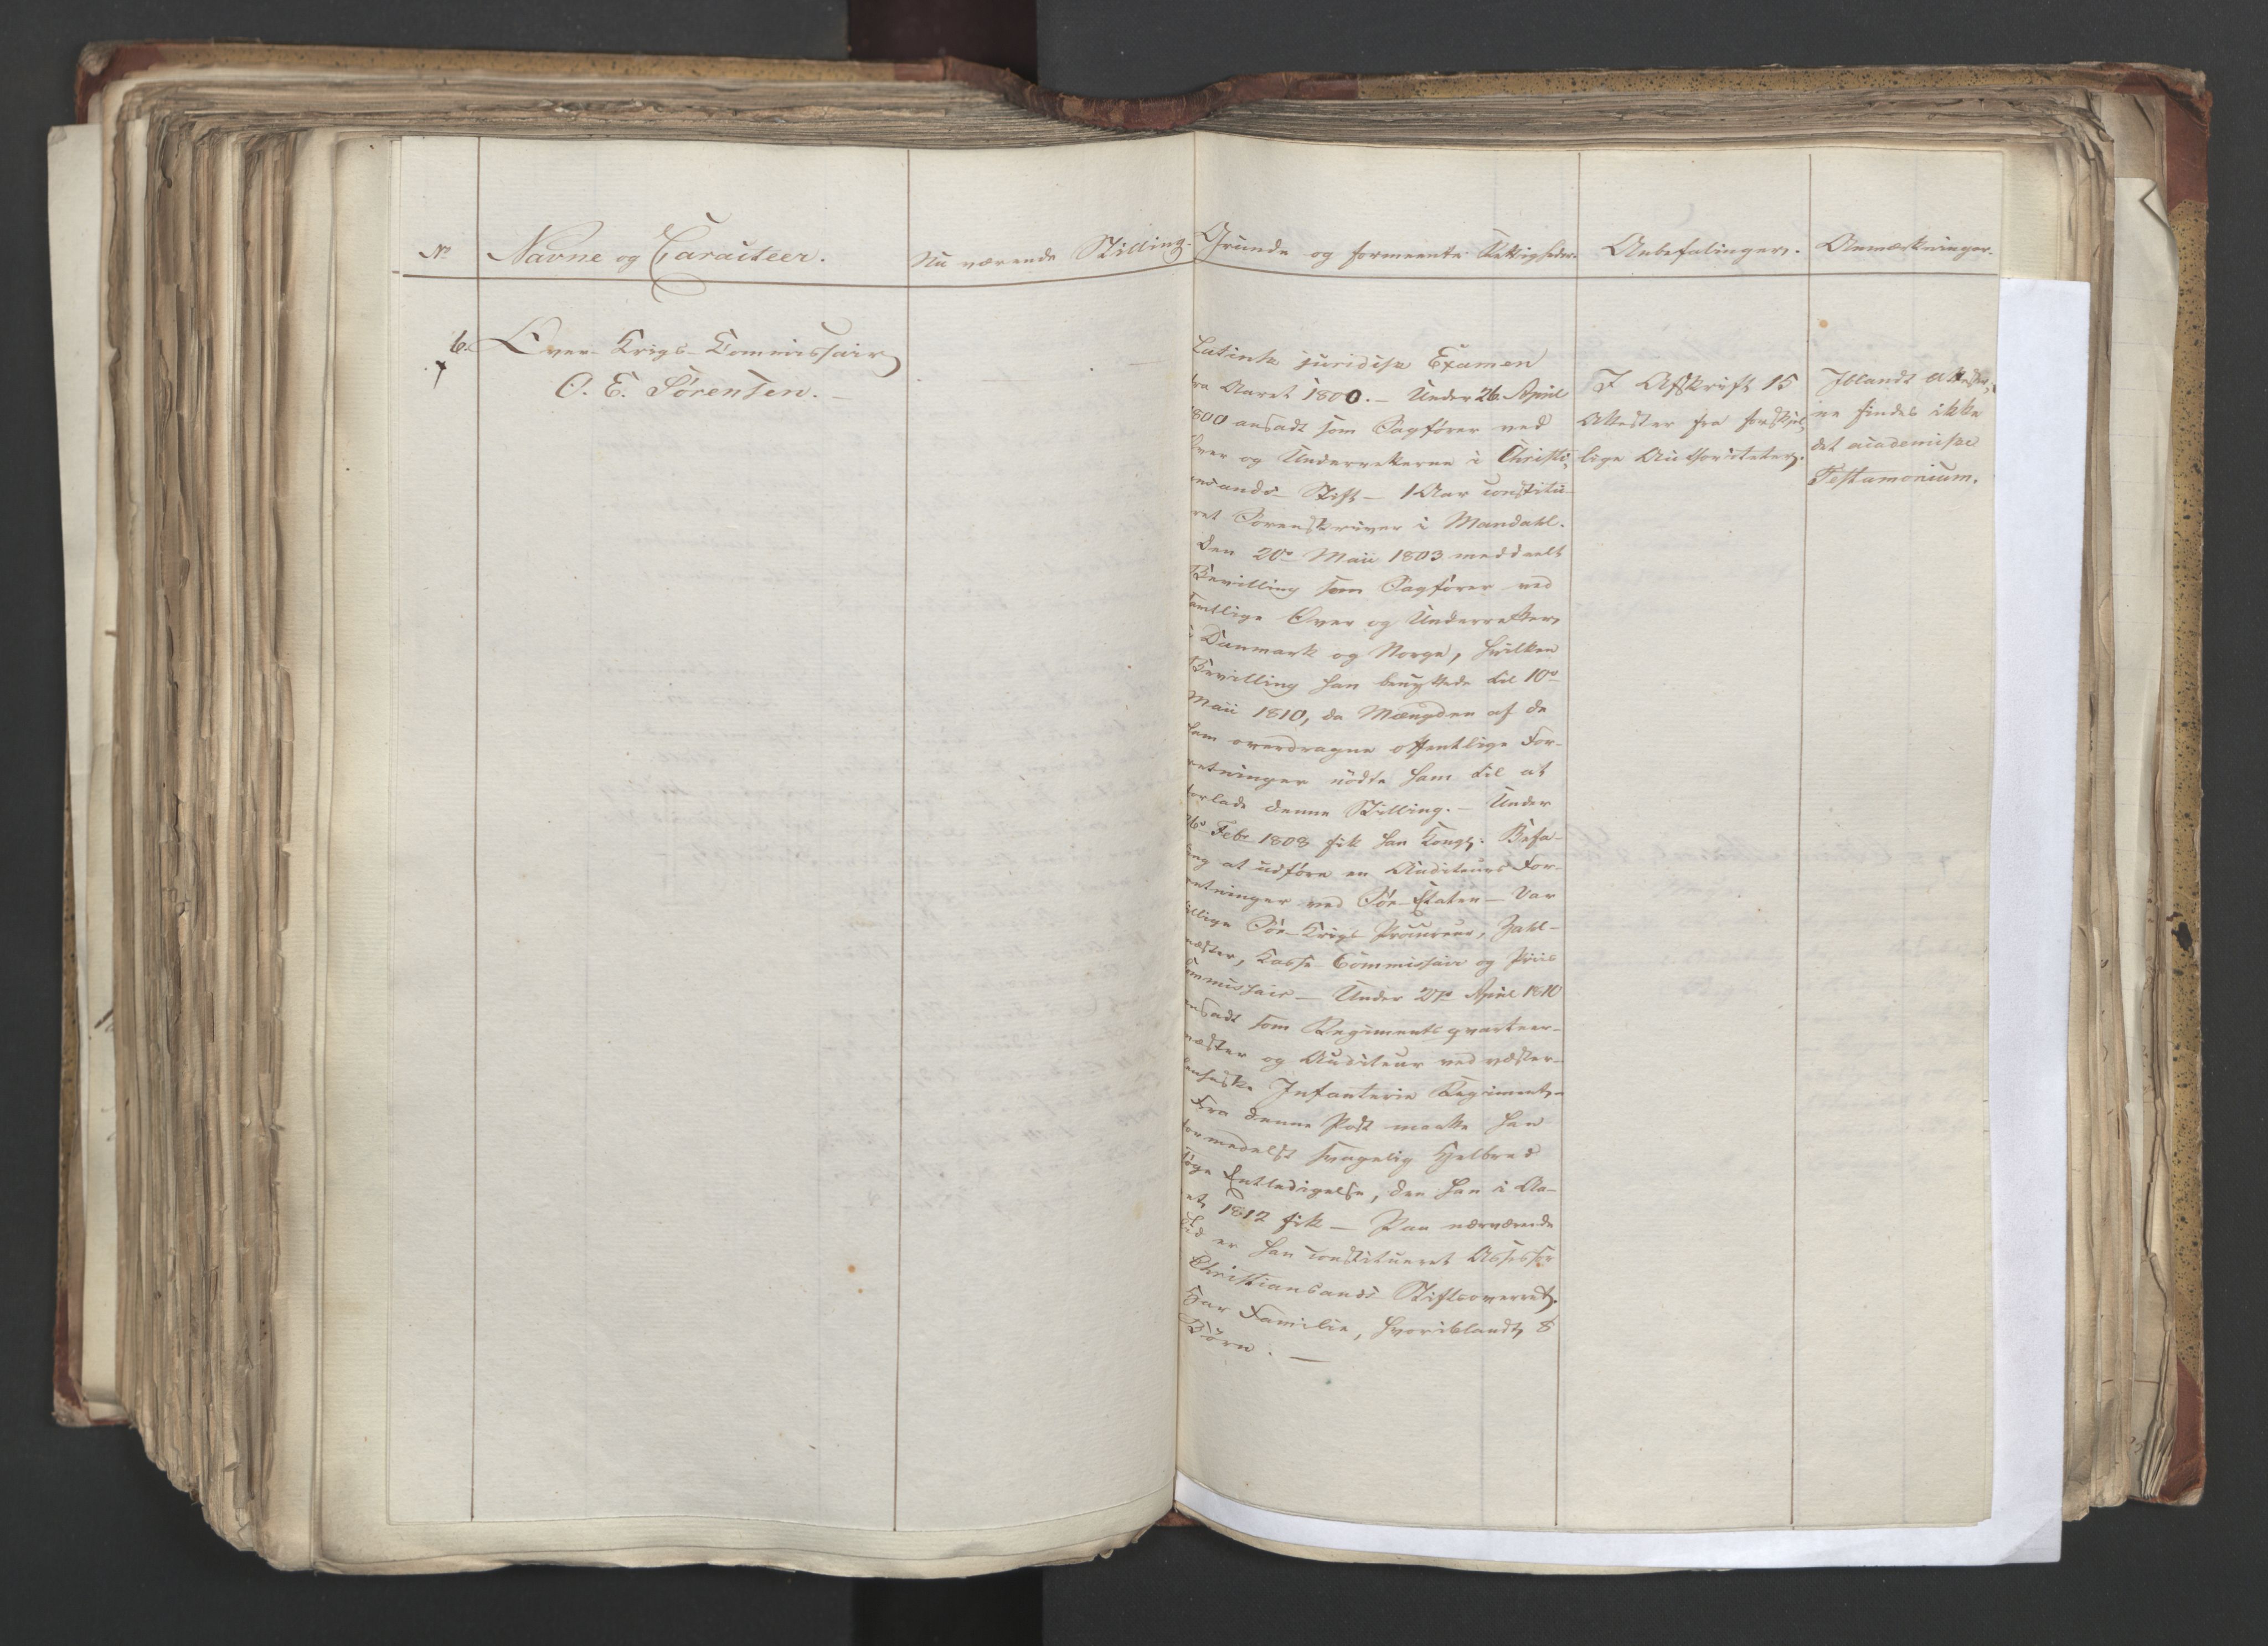 No
Navne og Caracteer.
Nu værende Stilling.
Grunde og formeente Rettigheder.
Anbefalinger.
Anmærkninger.
6.
Over-Krigs-Commissair
O. E. Sørensen. —
Latinsk juridisk Examen
fra Aaret 1800. — Under 26 April
1800 ansadt som Sagfører ved
Over og Underretterne i Christi-
ansands Stift — 1 Aar constitu-
ret Sorenskriver i Mandahl.
Den 20de Maii 1803 meddeelt
Bevilling som Sagfører ved
samtlige Over og Underretter
i Danmark og Norge, hvilken
Bevilling han benyttede til 10de
Maii 1810, da Mængden af de
ham overdragne offentlige For-
retninger nødte ham til at
forlade denne Stilling. — Under
Febr 1808 fik han Kongl: Befa-
ling at udføre en Auditeurs For-
retninger ved Søe-Etaten — Var
tillige Søe-Krigs Procureur, Zahl-
mester, Kasse-Commissair og Priis
Commissair — Under 27de April 1810
ansadt som Regimentsqvarteer-
mester og Auditeur ved vester-
lenske Infanterie Regiment —
Fra denne Post maatte han
formedelst svagelig Helbred
søge Entledigelse, den han i Aa-
ret 1812 fik — Paa nærværende
Tid er han constitueret Assessor
Christiansands Stiftsoverret.
Har Familie, hvoriblandt 8
Børn. —
I Afskrift 15
Attester fra forskjel-
lige Authoriteter.
Iblandt Attester-
ne findes ikke
det academiske
Testamonium.